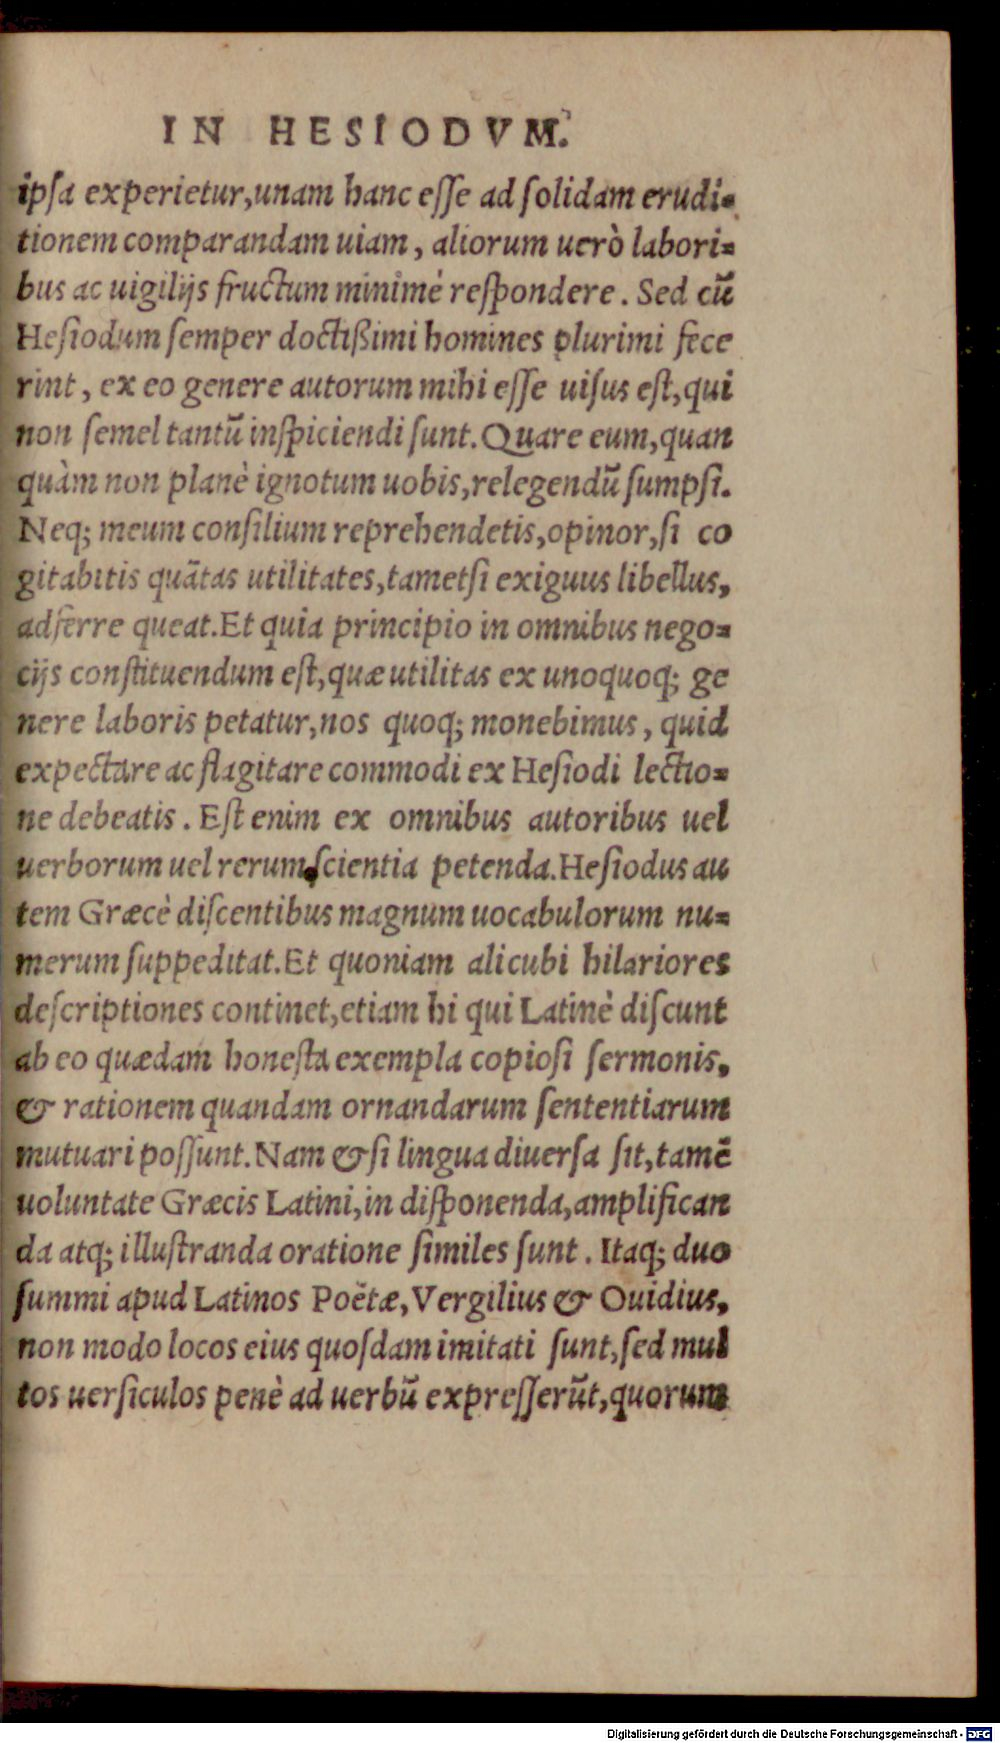 IN HESIODVM.
ipſa experietur,unam hanc eſſe ad ſolidam erudi=
tionem comparandam uiam, aliorum uerò labori=
bus ac uigilijs fructum minimè reſpondere. Sed cū
Heſiodum ſemper doctißimi homines plurimi fece
rint, ex eo genere autorum mihi eſſe uiſus eſt,qui
non ſemel tantū inſpiciendi ſunt. Quare eum,quan
quàm non planè ignotum uobis,relegendū ſumpſi.
Neq; meum conſilium reprehendetis,opinor,ſi co
gitabitis quātas utilitates,tametſi exiguus libellus,
adferre queat.Et quia principio in omnibus nego=
cijs conſtituendum eſt,quæ utilitas ex unoquoq; ge
nere laboris petatur,nos quoq; monebimus, quid
expectare ac flagitare commodi ex Heſiodi lectio=
ne debeatis. Eſt enim ex omnibus autoribus uel
uerborum uel rerum ſcientia petenda.Heſiodus au
tem Græcè diſcentibus magnum uocabulorum nu=
merum ſuppeditat.Et quoniam alicubi hilariores
deſcriptiones continet,etiam hi qui Latinè diſcunt
ab eo quædam honeſta exempla copioſi ſermonis,
& rationem quandam ornandarum ſententiarum
mutuari poſſunt.Nam & ſi lingua diuerſa ſit,tamē
uoluntate Græcis Latini,in diſponenda,amplifican
da atq; illuſtranda oratione ſimiles ſunt. Itaq; duo
ſummi apud Latinos Poëtæ,Vergilius & Ouidius,
non modo locos eius quoſdam imitati ſunt,ſed mul
tos uerſiculos penè ad uerbū expreſſerūt,quorum
Digitalisierung gefördert durch die Deutsche Forschungsgemeinschaft - DFG